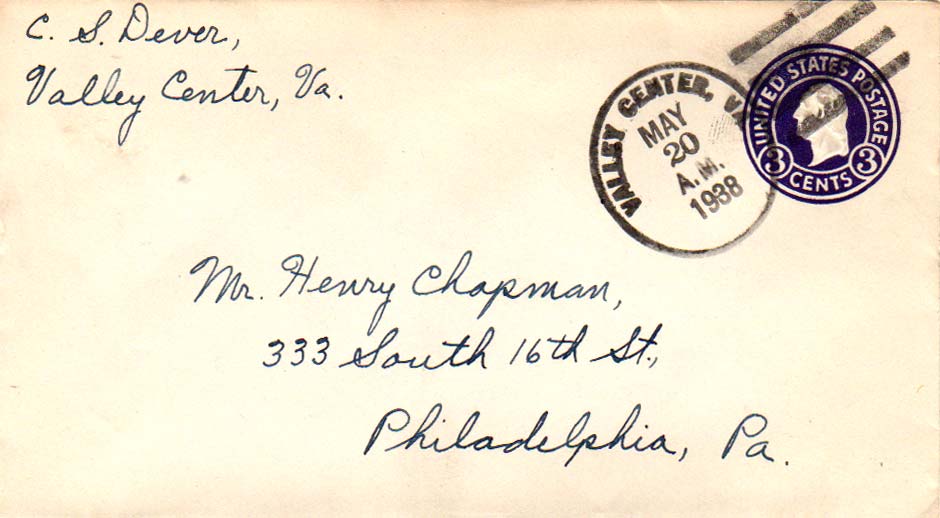 C. S. Dever,
Valley Center, Va.
VALLEY CENTER, VA
MAY
20
A.M.
1938
UNITED STATES POSTAGE
3 CENTS 3
Mr. Henry Chapman,
333 South 16th St.,
Philadelphia, Pa.